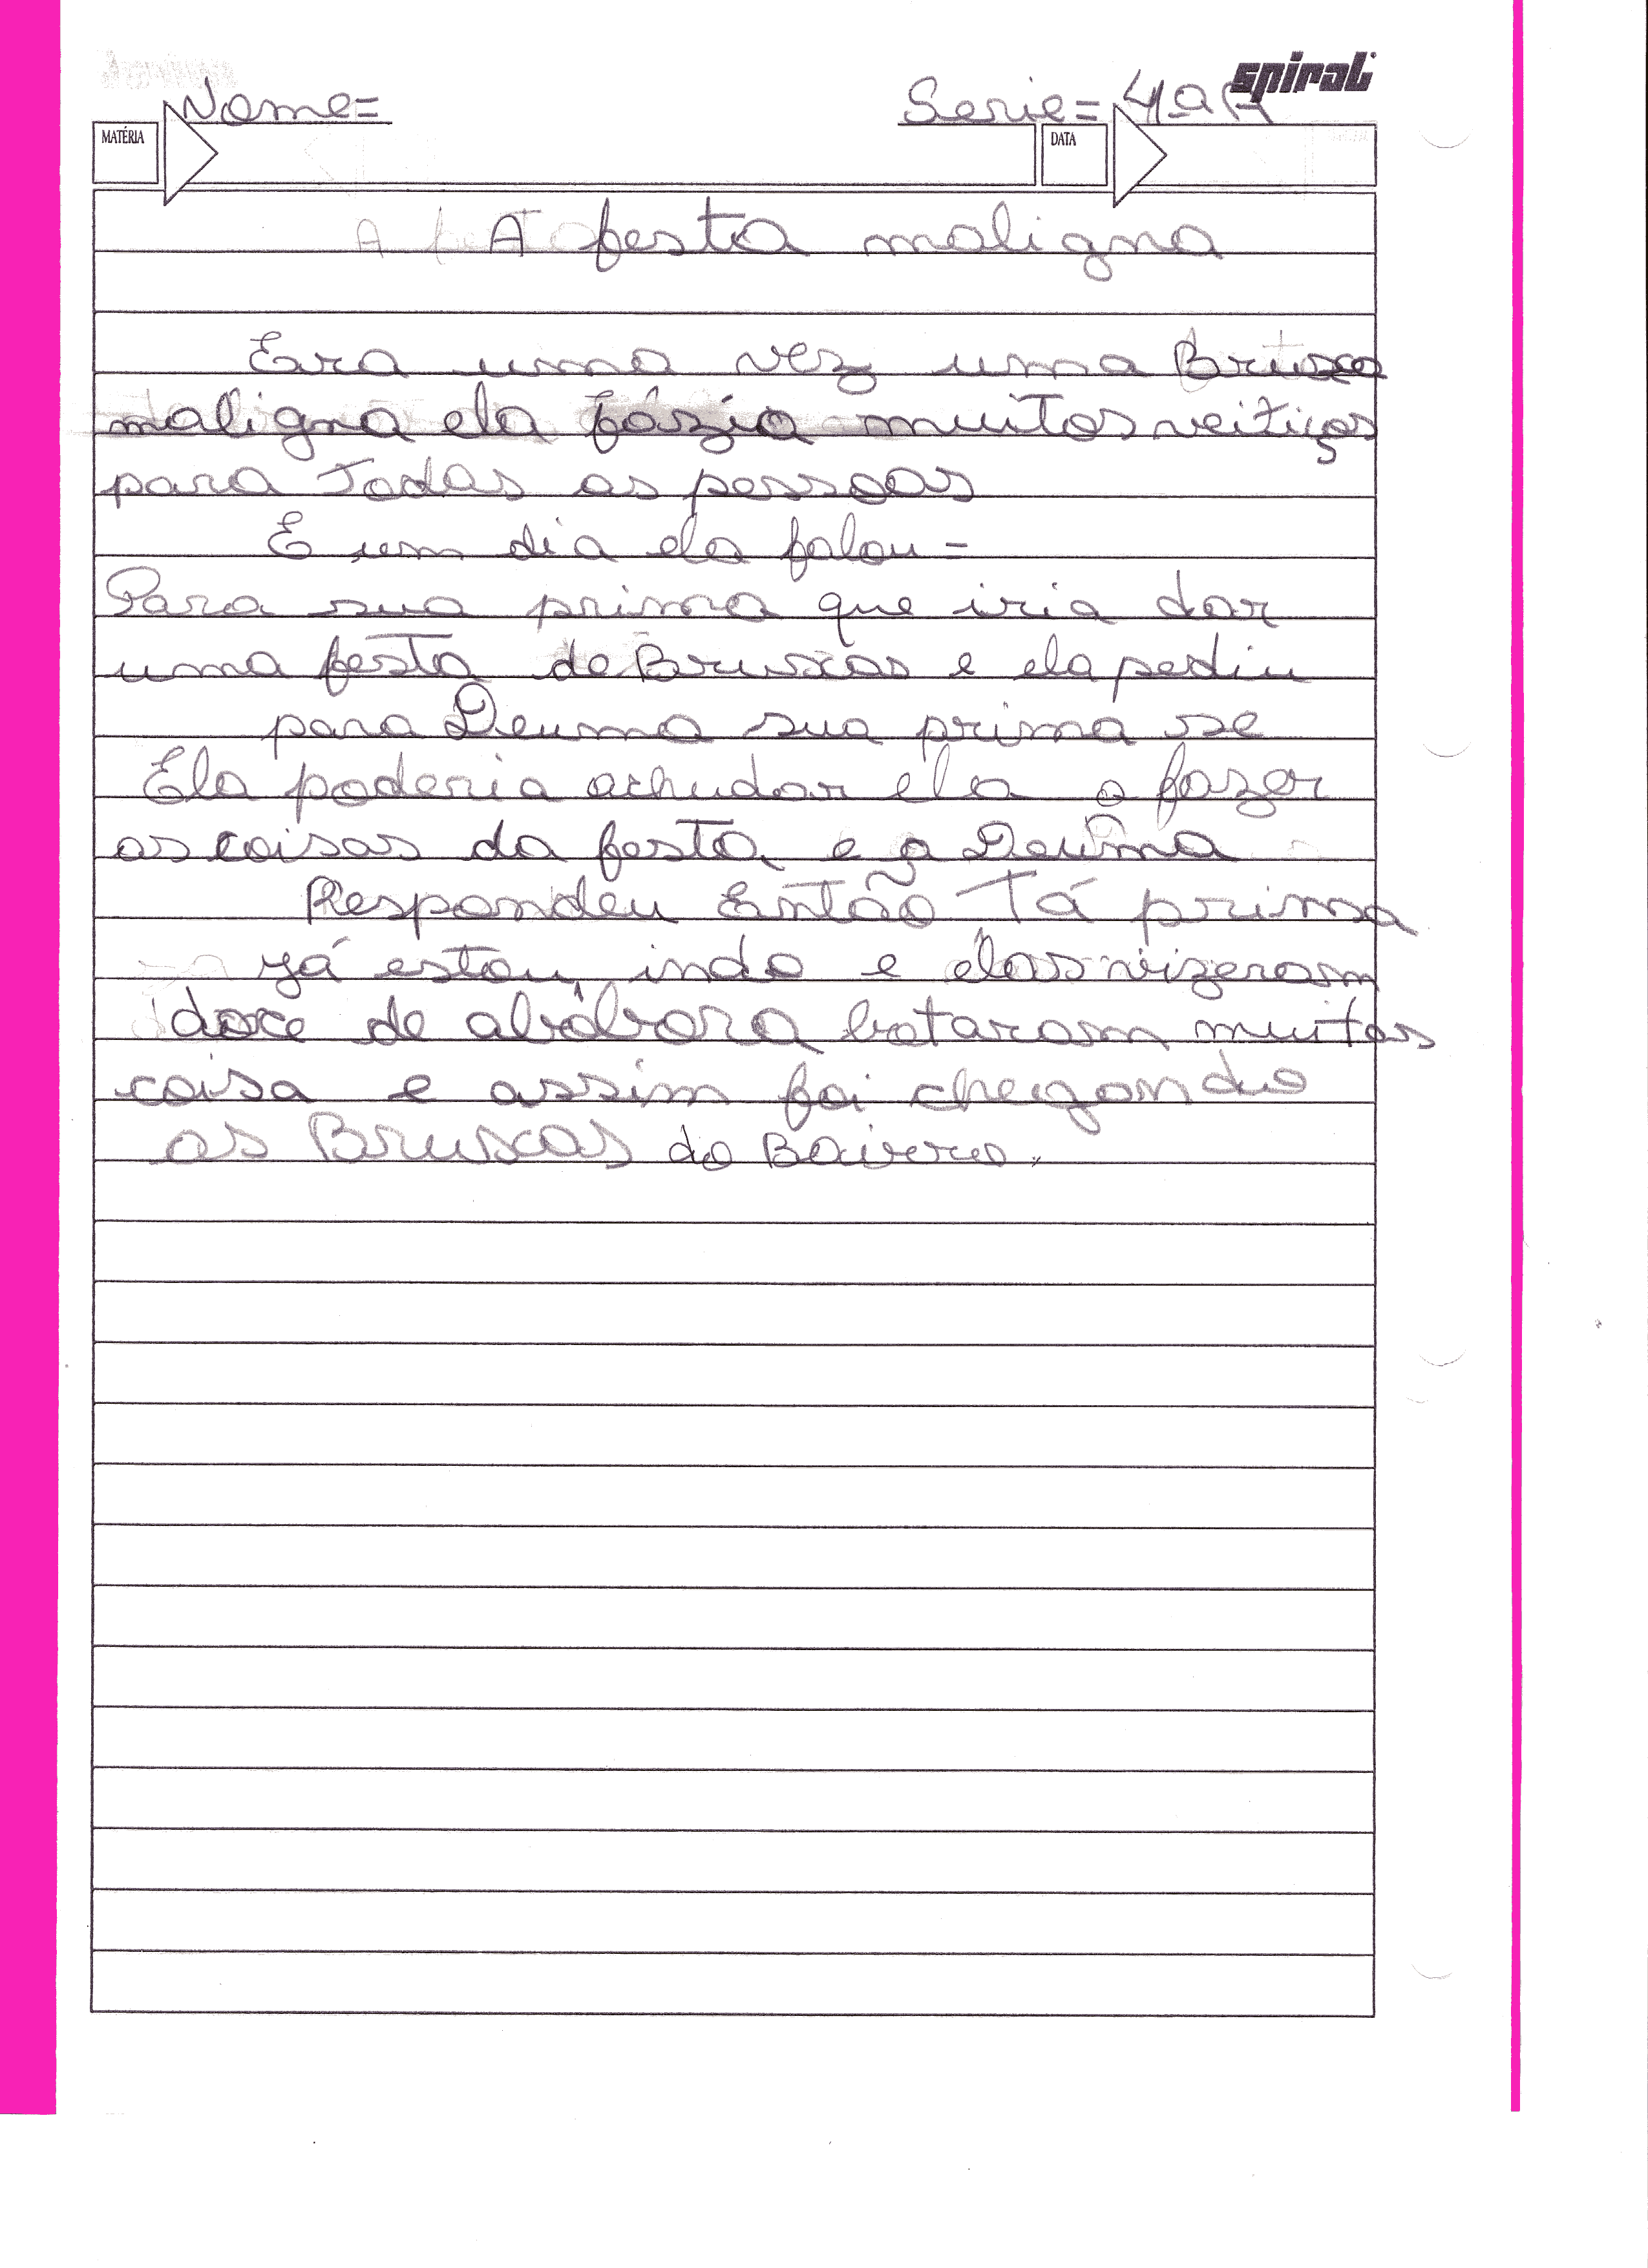 spiral
Nome= Serie= 4ª A
MATÉRIA DATA
A festa maligna
Era uma vez uma Bruxa
maligna ela fázia muitos veitiços
para Todas as pessoas
E um dia ela falou -
Para sua prima que iria dar
uma festa de Bruxas e ela pediu
para Deuma sua prima se
Ela poderia achudar ela a fazer
as coisas da festa e a Deuma
Respondeu Então Tá prima
yá estou indo e elas vizeram
doce de abóbora botaram muitas
coisa e assim foi chegando
as Bruxas do Bairro.